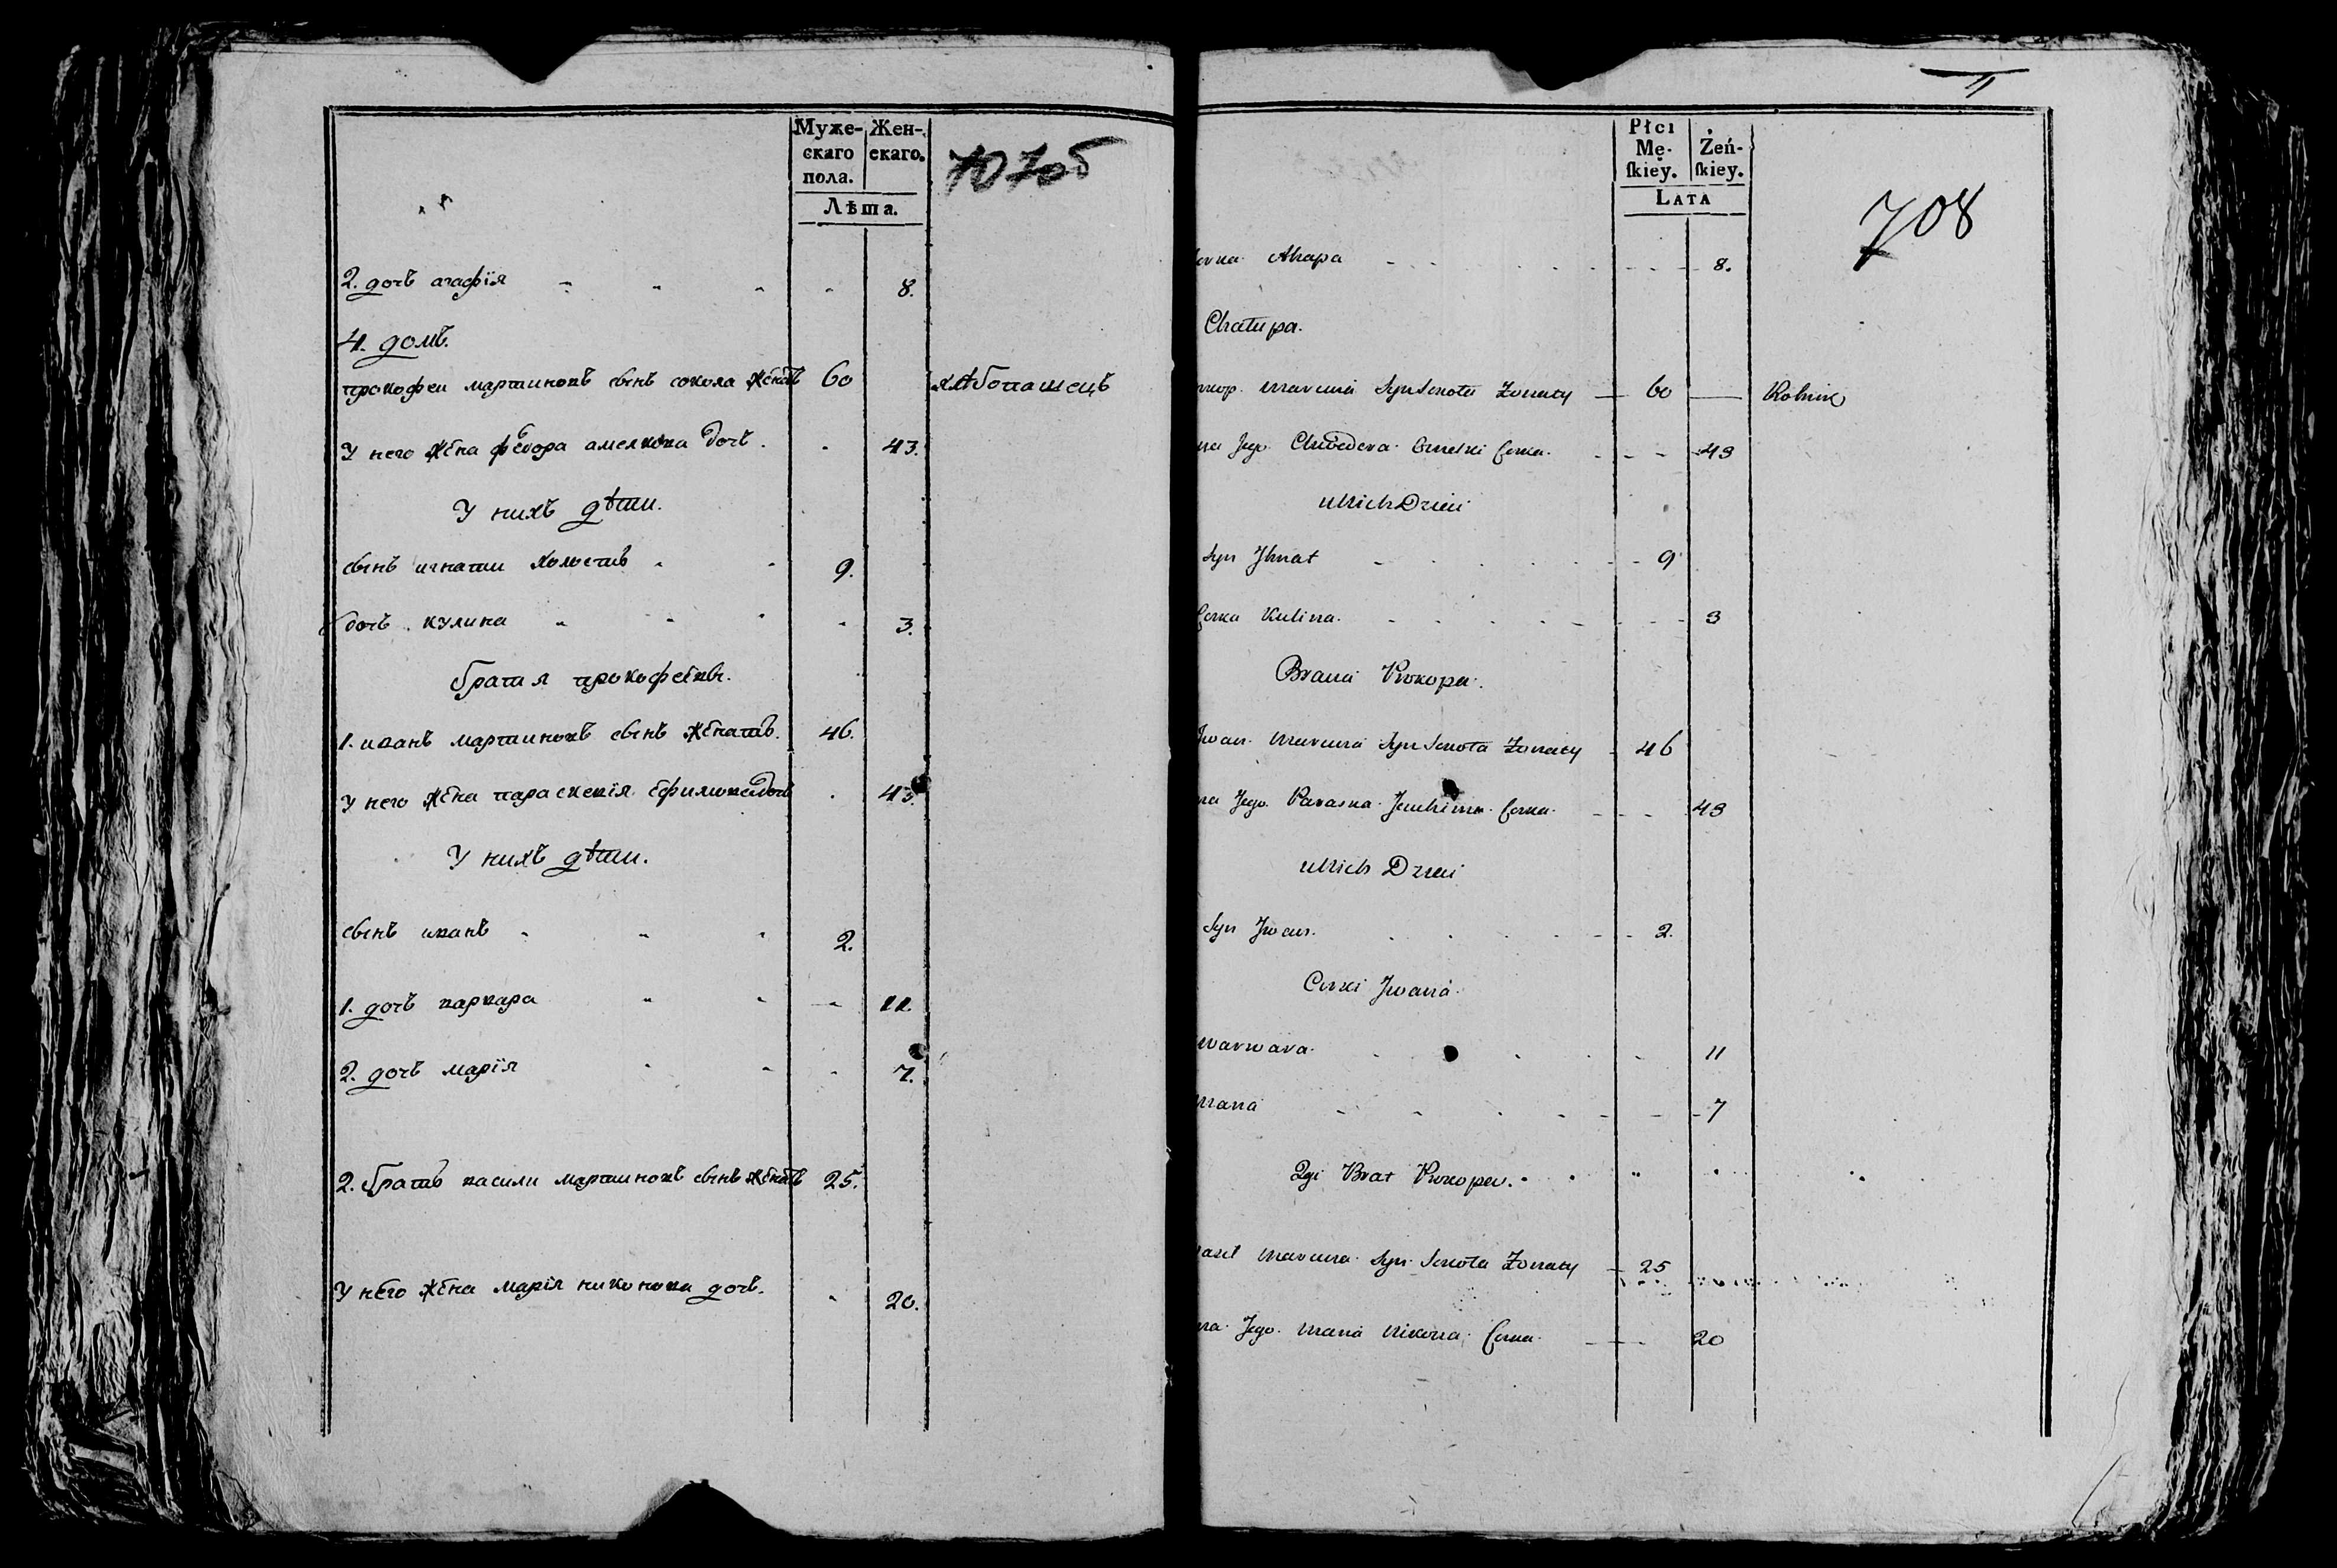 Муже-
скаго
пола.
Жен-
скаго.
Лѣта.
707об
2. дочь агафїя 8.
4. домъ.
прокофеи мартиновъ сынъ сокола женатъ 60 хлѣбопашецъ
У него жена феѵдора амелкова дочь. 43.
У нихъ дѣти.
сынъ игнатии холостъ 9.
дочь кулина 3.
братия прокофеквы.
1. иванъ мартиновъ сынъ женатъ. 46.
У него жена параскевїя ефимова дочь 43.
У нихъ дѣти.
сынъ иванъ 2.
1. дочь варвара 11.
2. дочь марїя 7.
2. братъ васили мартиновъ сынъ женатъ 25.
У него жена марїя никонова дочь. 20.
Płci
Mę-
ſkiey.
Żeń-
ſkiey.
LATA
708
Ahapa 8.
Chałupa.
Marcina Syn Żonaty 60 Rolnik
Jego Chwedora Omelki Corka 43
Dzieci
Syn Jhnat 9
Corka Kulina 3
Bracia Prokopa.
Jwan Marcina Syn Żonaty 46
Jego Paraska Jauchima Corka 43
Dzieci
Syn Jwan. 2.
Corki Jwana
Warwara 11
Maria 7
2gi Brat Prokopa.
Marcina Syn Żonaty 25
Jego Maria Nikona Corka 20